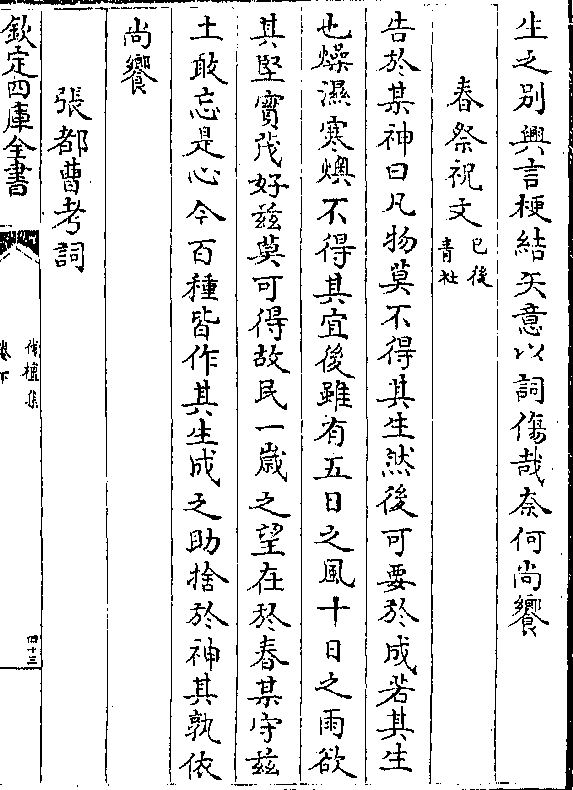 生之别興言梗結矢意以詞傷哉奈何尚饗
春祭祝文已後青社
告於某神曰凡物莫不得其生然後可要於成若其生
也燥濕寒燠不得其宜後雖有五日之風十日之雨欲
其堅實茂好兹莫可得故民一嵗之望在於春某守兹
土敢忘是心今百種皆作其生成之助捨於神其孰依
尚饗
張都曹考詞
欽定四庫全書
伐檀集
卷下
四十三